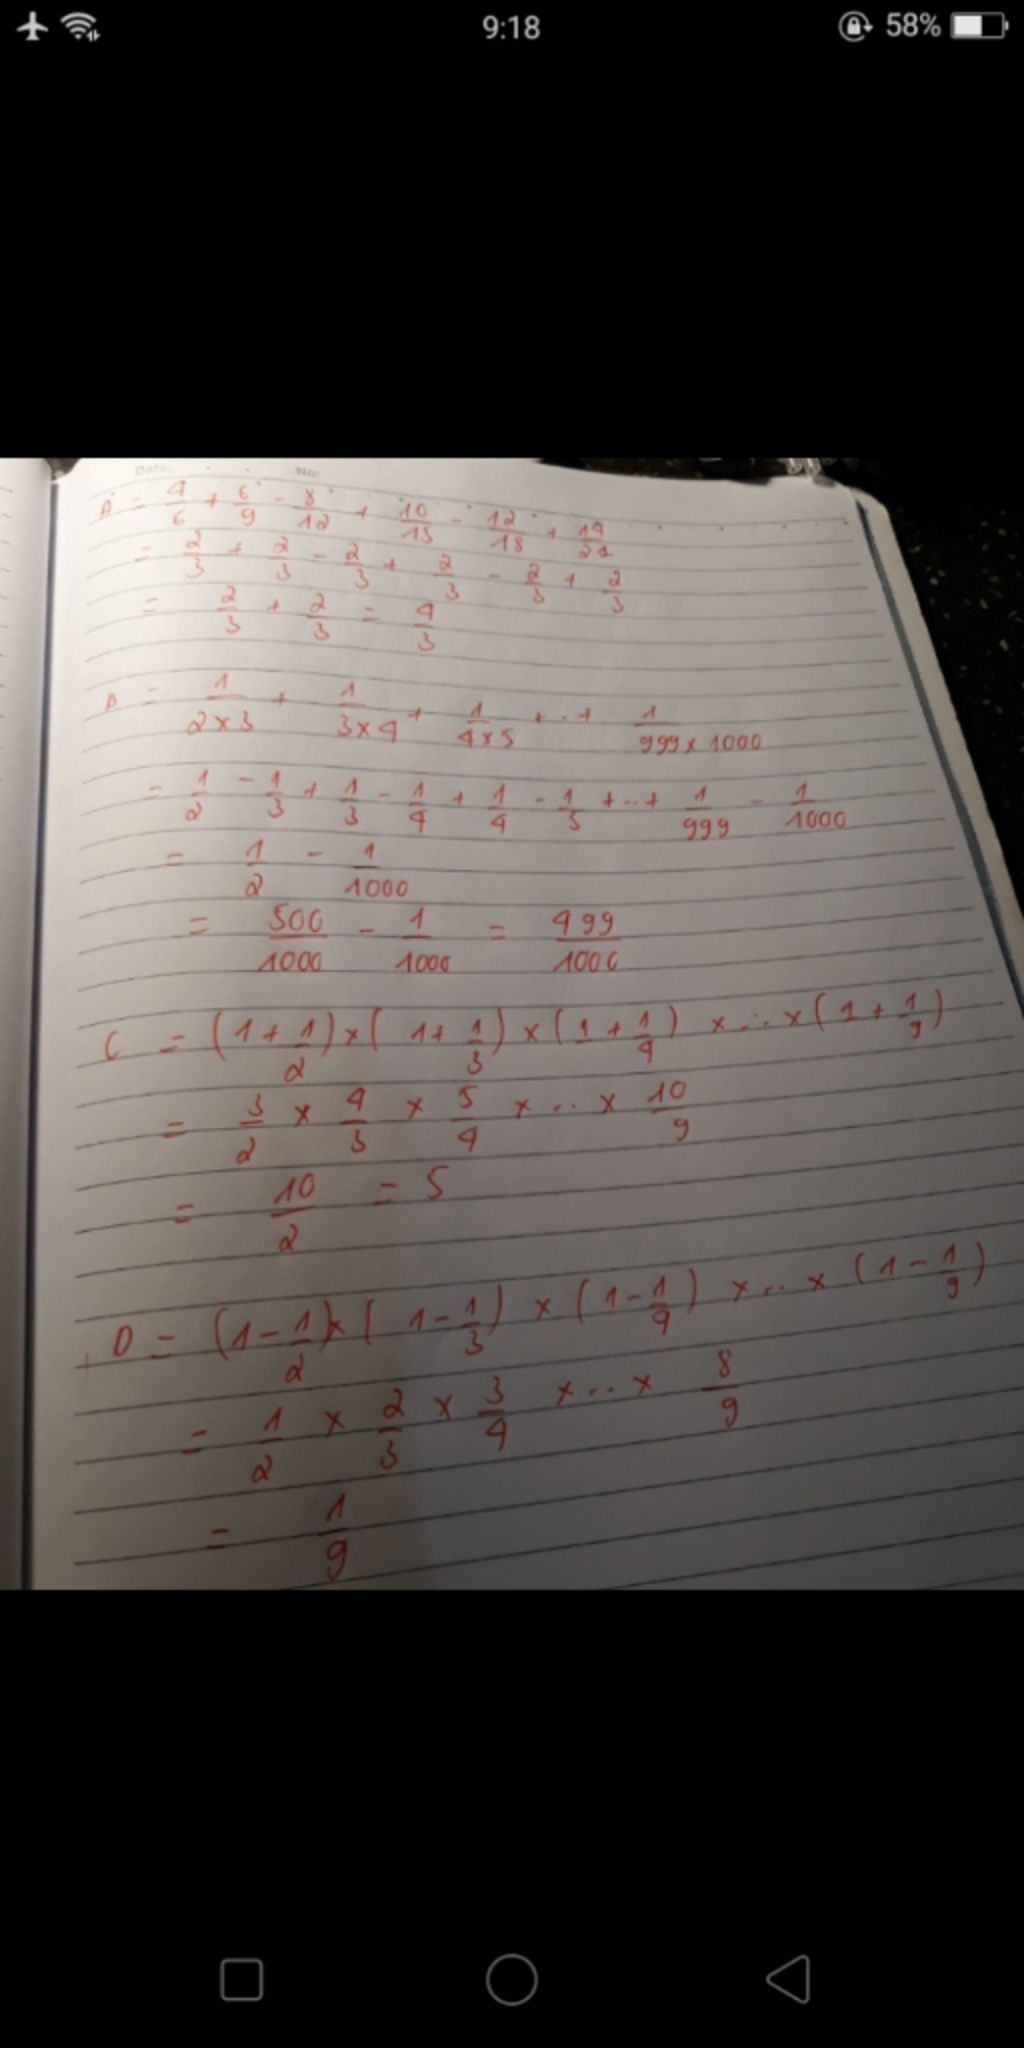 9:18
58%
Date: No:
A = 4/6 + 6/9 - 8/12 + 10/15 - 12/18 + 14/21
= 2/3 + 2/3 - 2/3 + 2/3 - 2/3 + 2/3
= 2/3 + 2/3 = 4/3
B = 1/(2×3) + 1/(3×4) + 1/(4×5) + .. + 1/(999×1000)
= 1/2 - 1/3 + 1/3 - 1/4 + 1/4 - 1/5 + .. + 1/999 - 1/1000
= 1/2 - 1/1000
= 500/1000 - 1/1000 = 499/1000
C = (1 + 1/2) × (1 + 1/3) × (1 + 1/4) × ... × (1 + 1/9)
= 3/2 × 4/3 × 5/4 × .. × 10/9
= 10/2 = 5
D = (1 - 1/2) × (1 - 1/3) × (1 - 1/4) × ... × (1 - 1/9)
= 1/2 × 2/3 × 3/4 × ... × 8/9
= 1/9